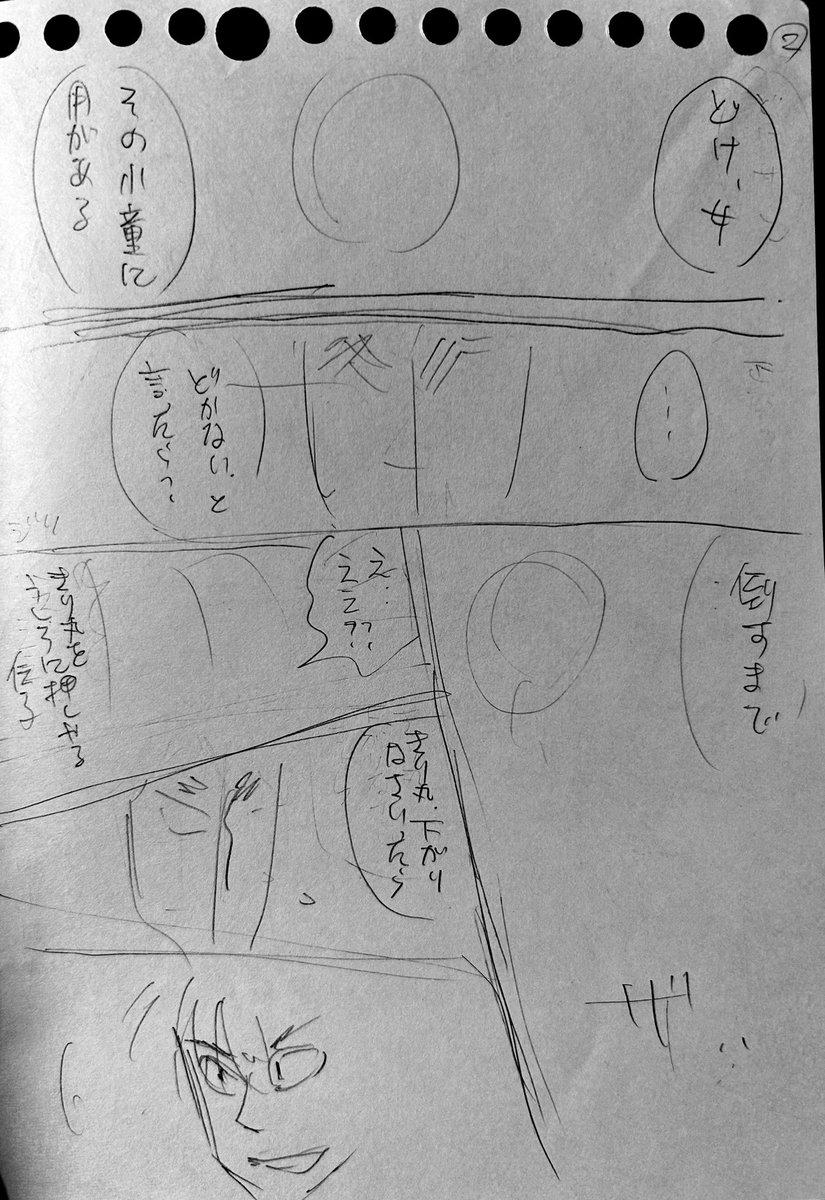 ②
どけ、女
その小童に
用がある
…
どかない、と
言ったら?
倒すまで
え…
ええ??
ジリ
きり丸を押しやる
うしろに
伝子
きり丸、下がり
なさいったら
ザ…